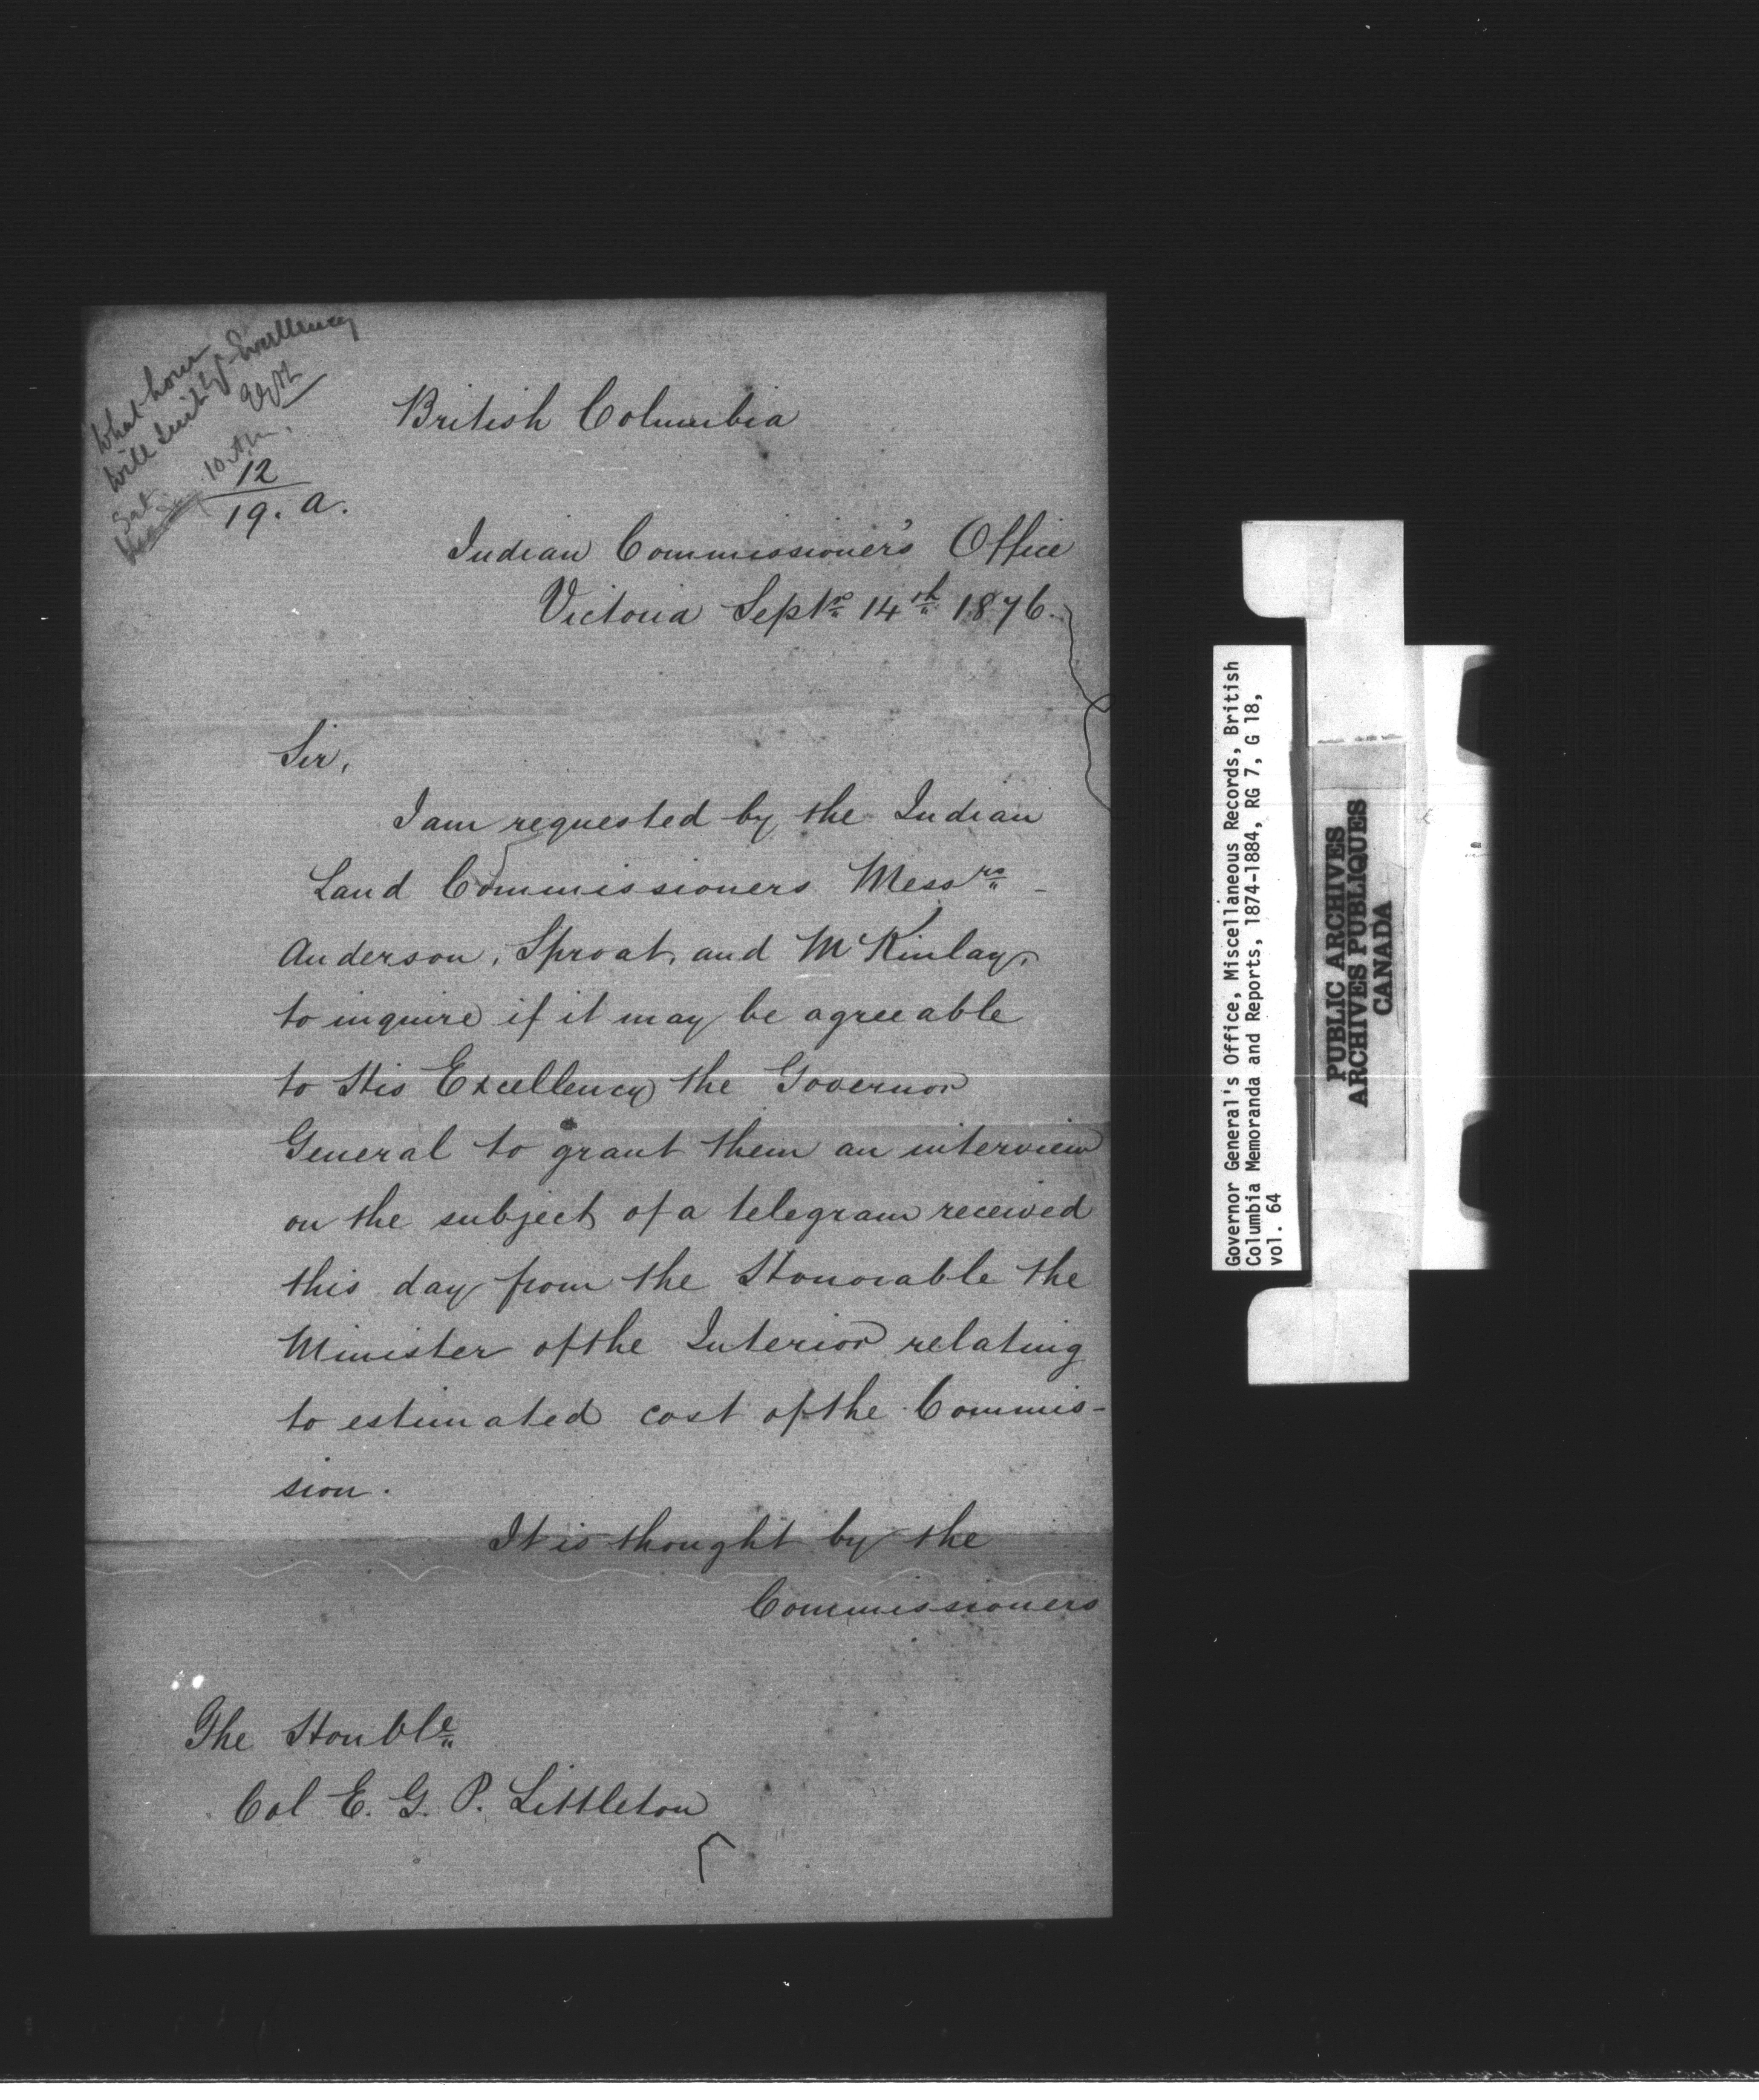 What hour
will suit by Excellency
10 A.M.
Sat
12
19. a.
British Columbia
Indian Commissioner's Office
Victoria Septr 14th 1876.
Sir,
I am requested by the Indian
Land Commissioners Messrs -
Anderson, Sproat, and McKinlay,
to inquire if it may be agreeable
to His Excellency the Governor
General to grant them an interview
on the subject of a telegram received
this day from the Honorable the
Minister of the Interior relating
to estimated cost of the Commis-
sion.
It is thought by the
Commissioners
The Honble
Col E. G. P. Littleton
Governor General's Office, Miscellaneous Records, British
Columbia Memoranda and Reports, 1874-1884, RG 7, G 18,
vol. 64
PUBLIC ARCHIVES
ARCHIVES PUBLIQUES
CANADA